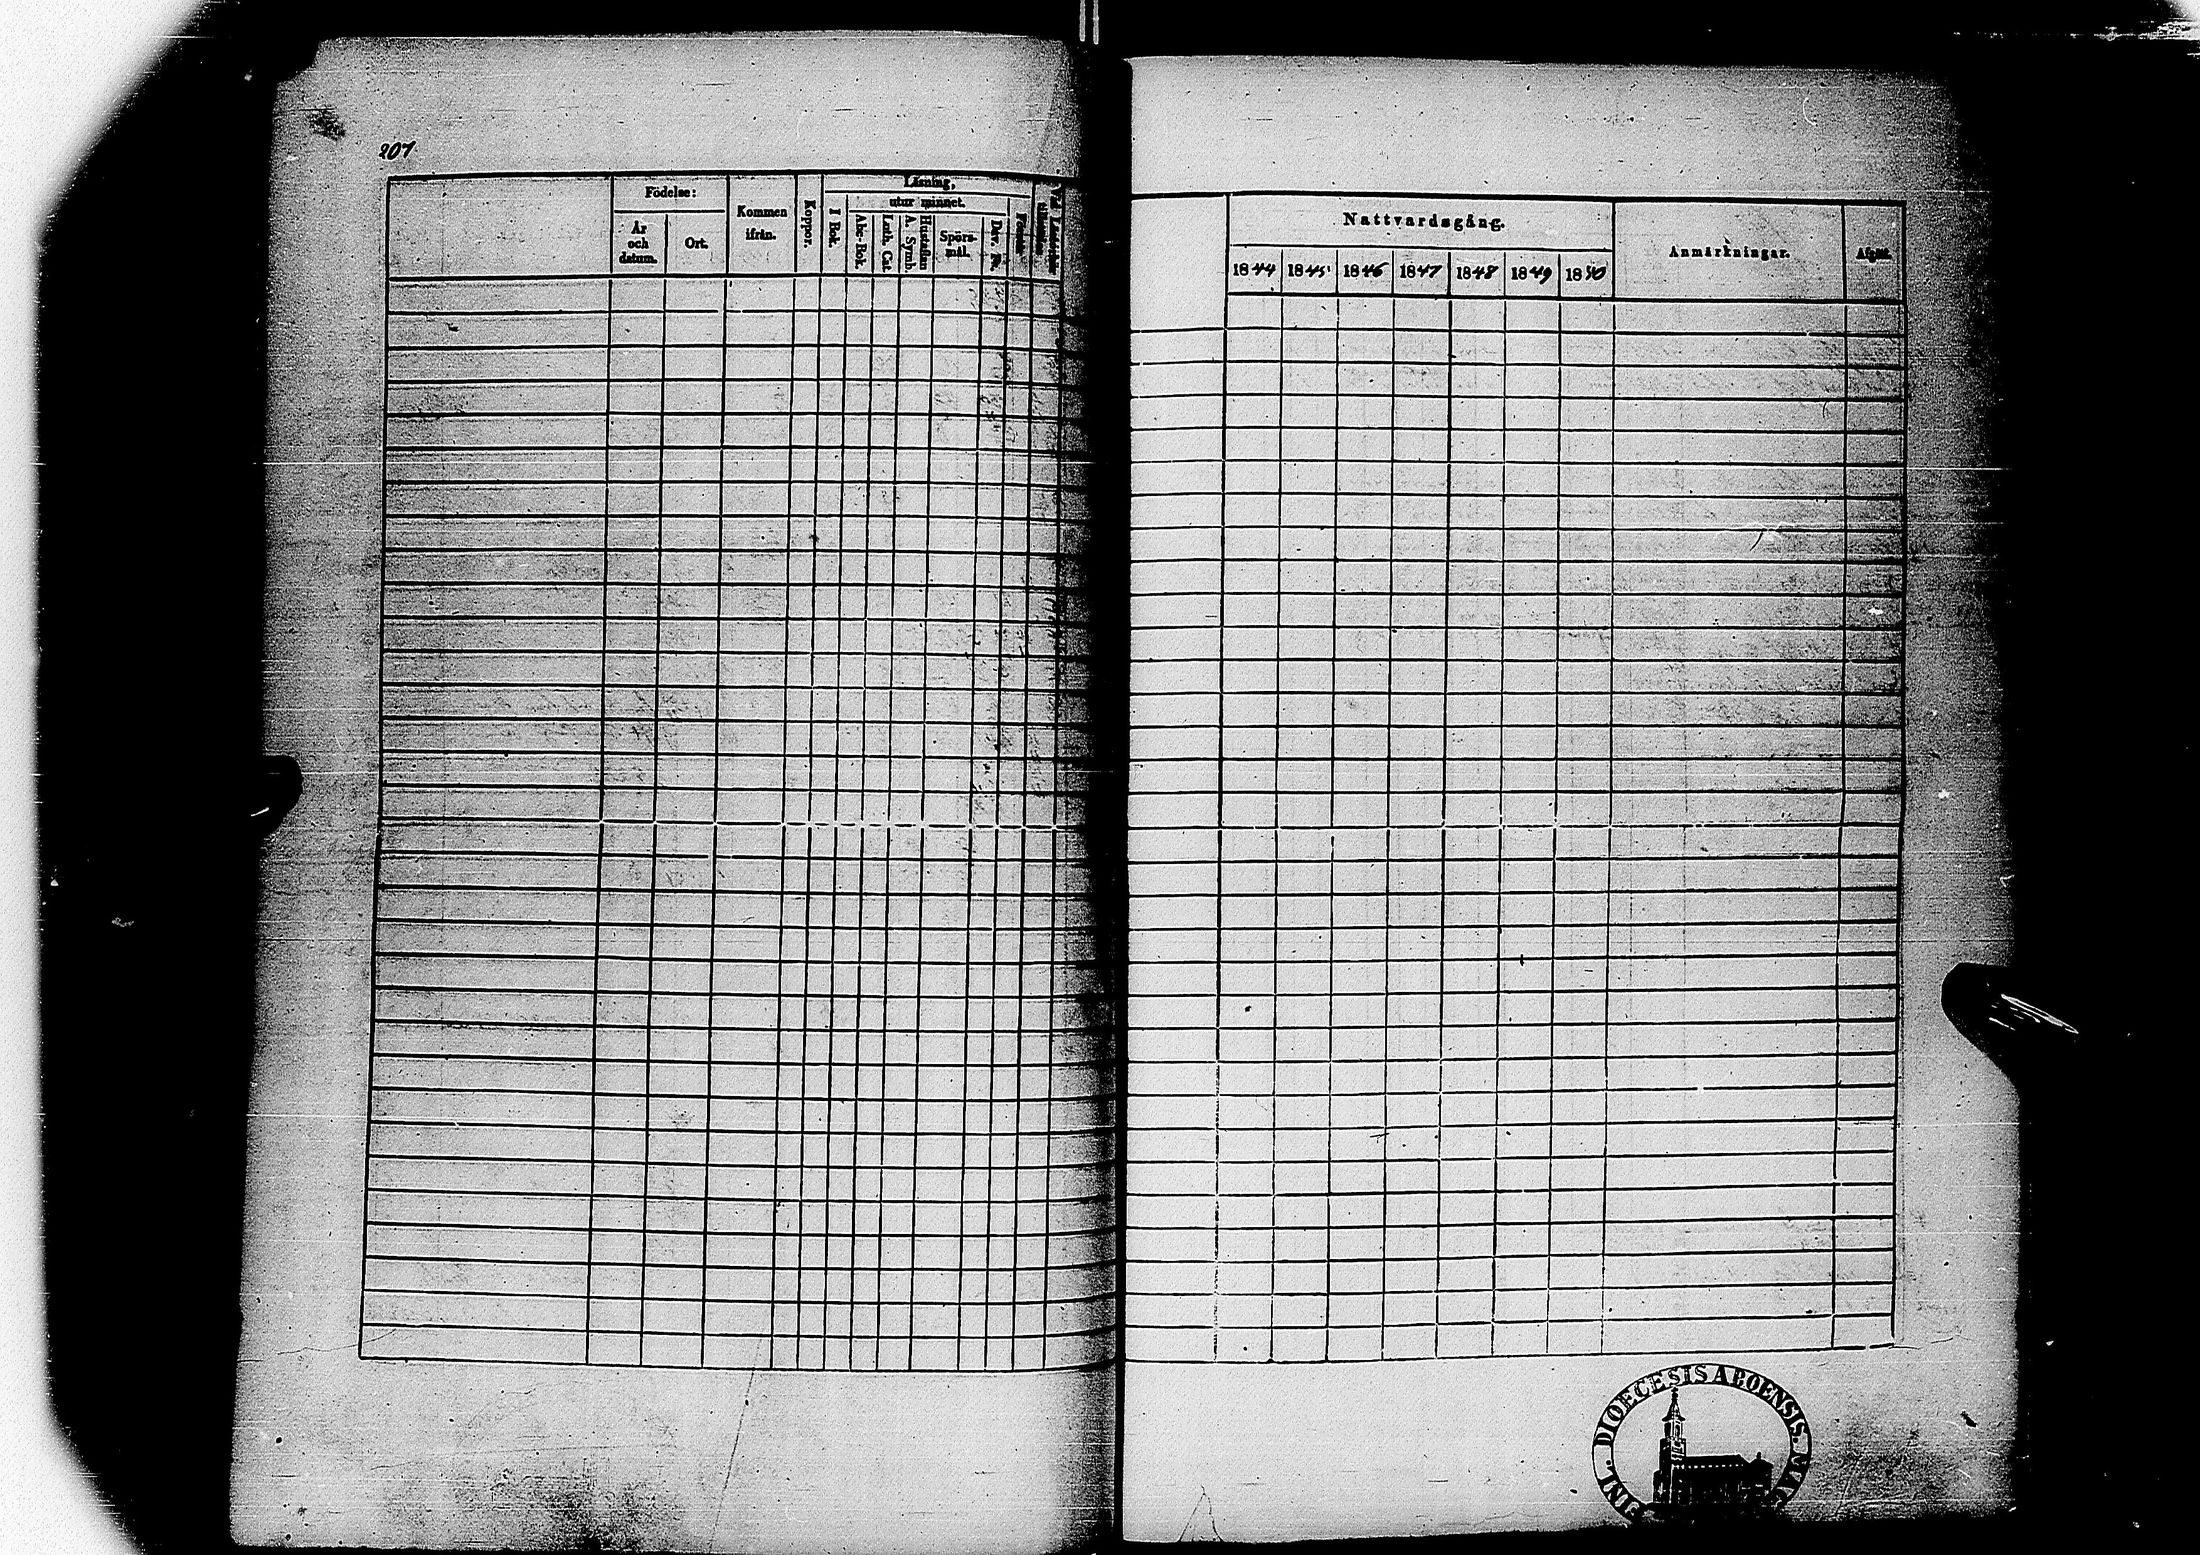 207
Födelse:
År
och
datum.
Ort.
Kommen
ifrån.
Koppor.
Läsning,
I Bok.
utur minnet.
Abc-Bok.
Luth. Cat.
Hustaflan
A. Symb.
Spörs-
mål.
Dav. Ps.
Nattvardsgång.
1844 1845 1846 1847 1848 1849 1850
Anmärkningar.
Afgått.
DIOECESIS ABOENSIS.